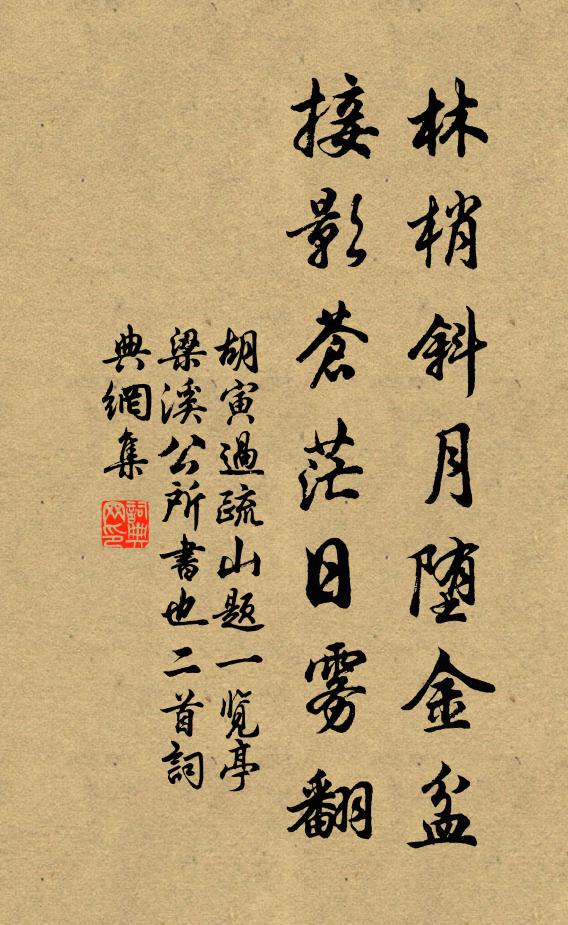 林梢斜月堕金盆
接影蒼茫日雾翻
胡寅過疏山题一览亭
梁溪公所書也二首詞
典網集
詞典
网印